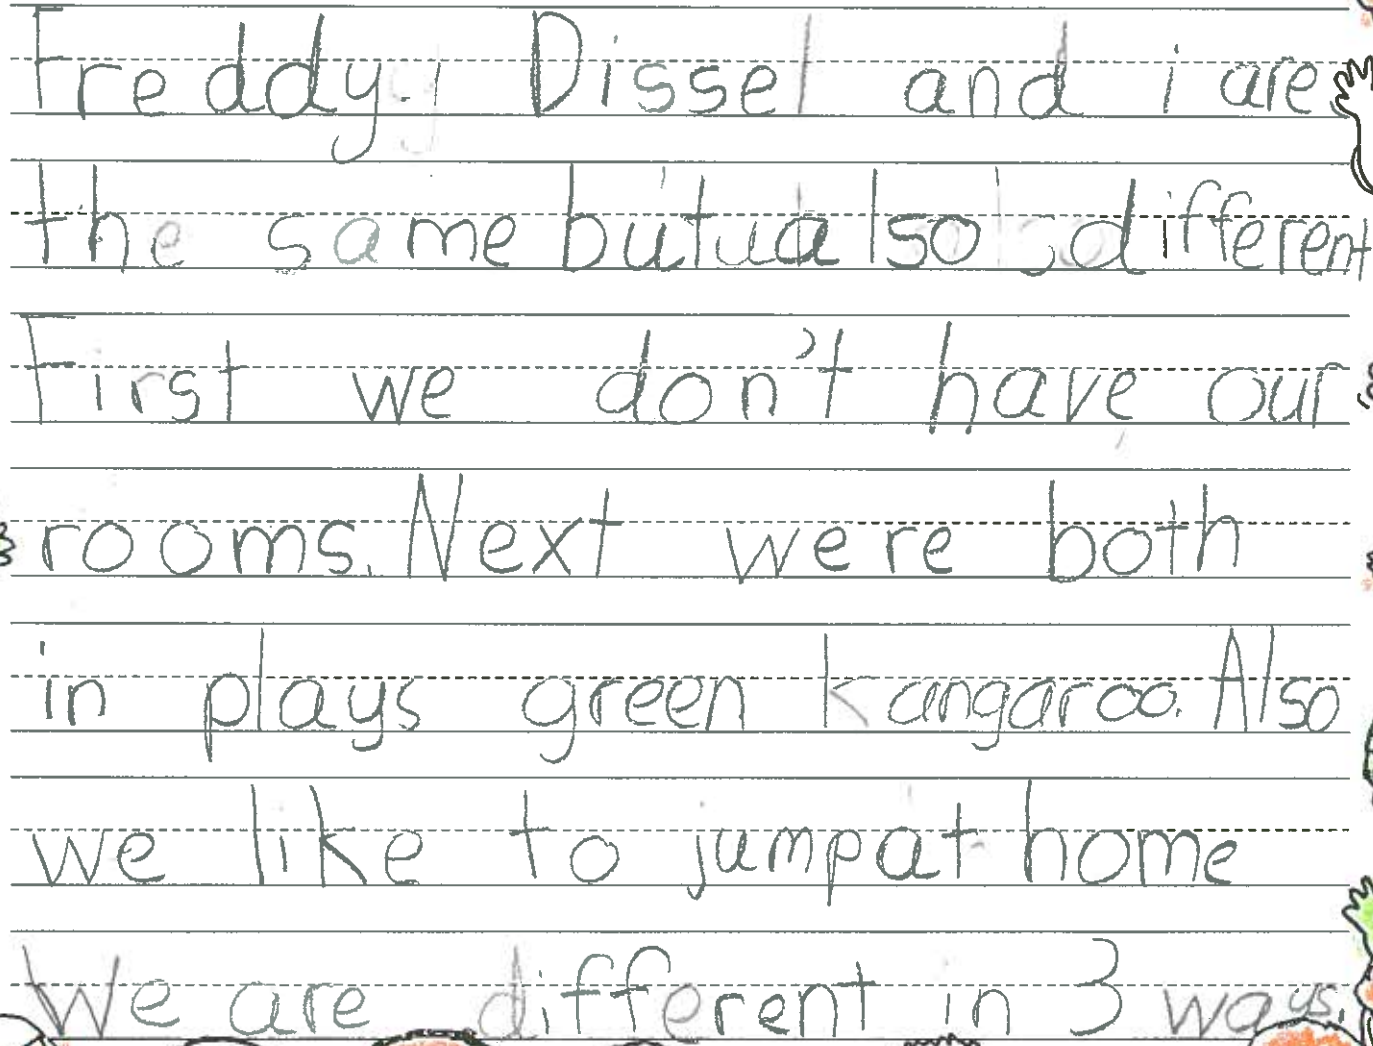 Freddy. Dissel and i are
the same but also different
First we don't have our
rooms. Next were both
in plays green kangaroo. Also
we like to jump at home
We are different in 3 ways.